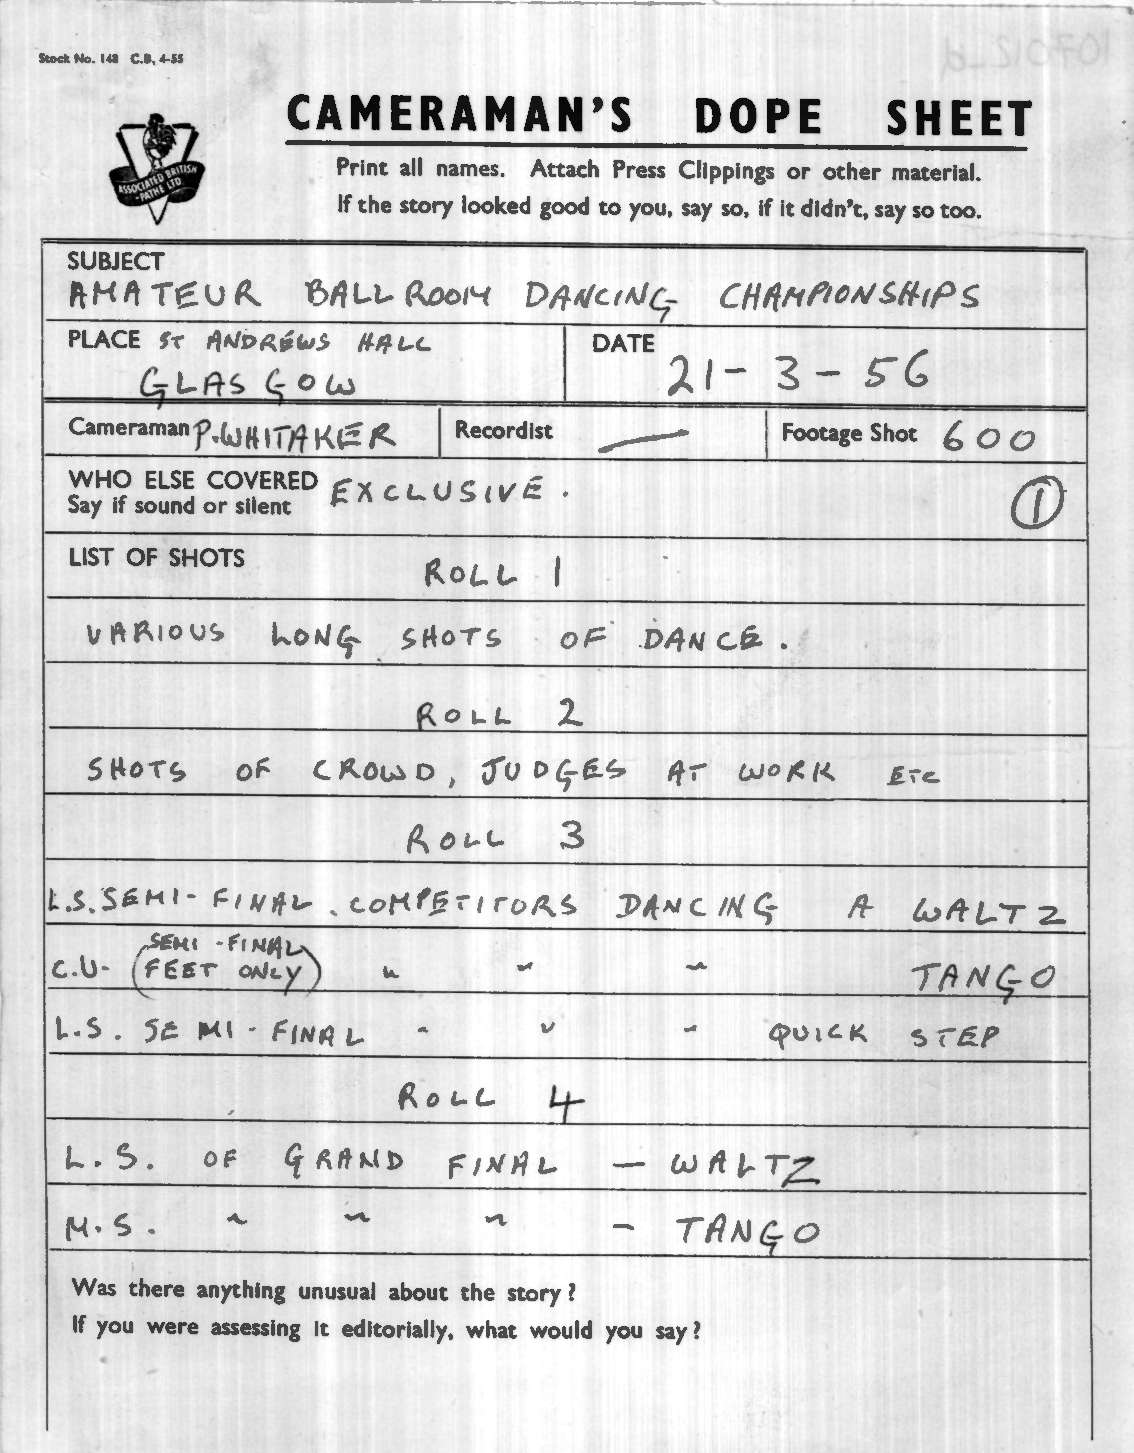 Stock No. 148 C.B. 4-55
CAMERAMAN'S DOPE SHEET
Print all names. Attach Press Clippings or other material.
If the story looked good to you, say so, if it didn't, say so too.
ASSOCIATED BRITISH
-PATHE LTD
SUBJECT
AMATEUR BALLROOM DANCING CHAMPIONSHIPS
PLACE ST ANDREWS HALL
GLASGOW
DATE
21-3-56
Cameraman P. WHITAKER
Recordist —
Footage Shot 600
WHO ELSE COVERED
Say if sound or silent
EXCLUSIVE.
1
LIST OF SHOTS
ROLL 1
VARIOUS LONG SHOTS OF DANCE.
ROLL 2
SHOTS OF CROWD, JUDGES AT WORK ETC
ROLL 3
L.S. SEMI-FINAL. COMPETITORS DANCING A WALTZ
C.U- (SEMI-FINAL
FEET ONLY) " " " TANGO
L.S. SEMI-FINAL " " " QUICK STEP
ROLL 4
L.S. OF GRAND FINAL — WALTZ
M.S. " " " — TANGO
Was there anything unusual about the story?
If you were assessing it editorially, what would you say?